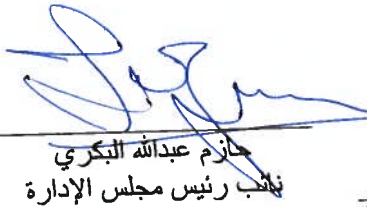 حازم عبدالله البكري
نائب رئيس مجلس الإدارة